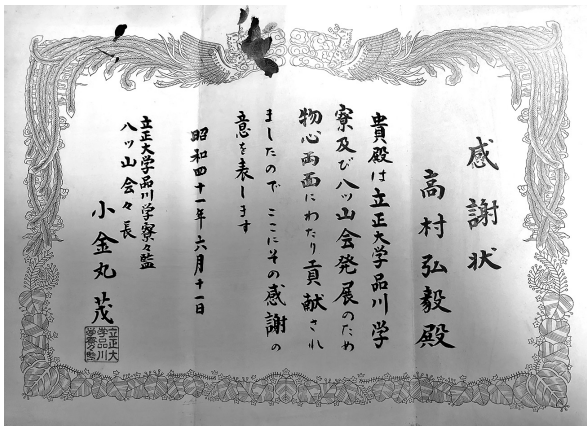 感謝状
高村弘毅殿
貴殿は立正大学品川学
寮及び八ッ山会発展のため
物心両面にわたり貢献され
ましたので ここにその感謝の
意を表します
昭和四十一年六月十一日
立正大学品川学寮々監
八ッ山会々長
小金丸 茂
立正大
学品川
学寮々監